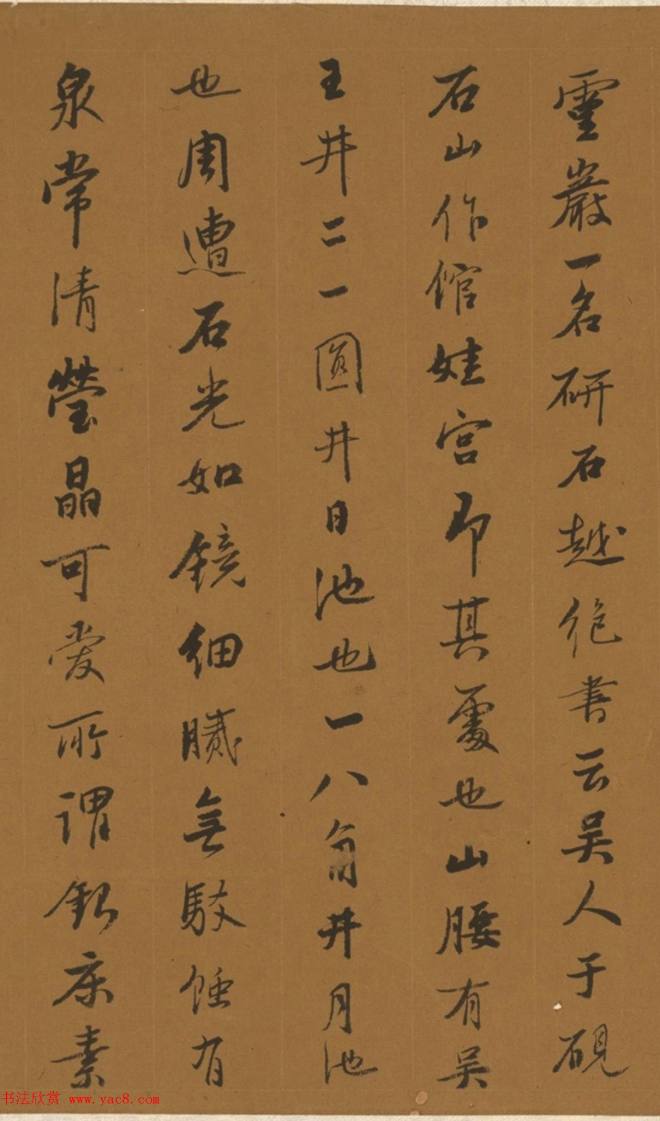 靈巖一名研石越絶書云吴人于硯
石山作館娃宫即其處也山腰有吴
王井二一圓井日池也一八角井月池
也周遭石光如鏡細膩無駁蝕有
泉常清瑩晶可爱所謂銀床素
书法欣赏 www.yac8.com